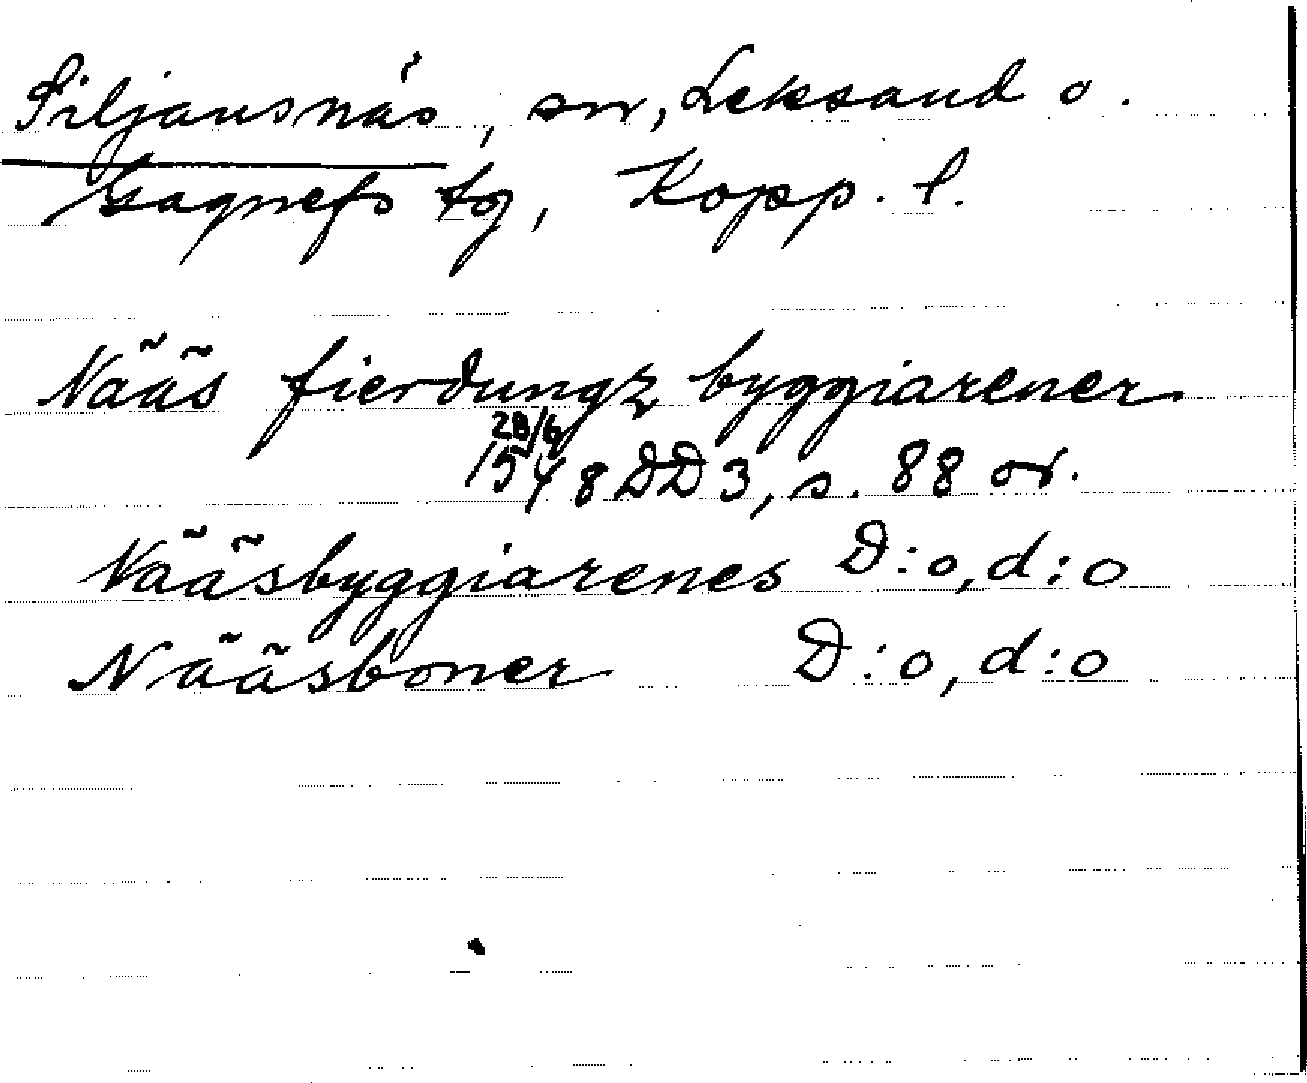 Siljansnäs, sn, Leksand o.
Gagnefs tg, Kopp. l.
Nääs fierdungz byggiarener
28/6
1548 DD 3, s. 88 or.
Nääsbyggiarenes D:o, d:o
Nääsboner D:o, d:o